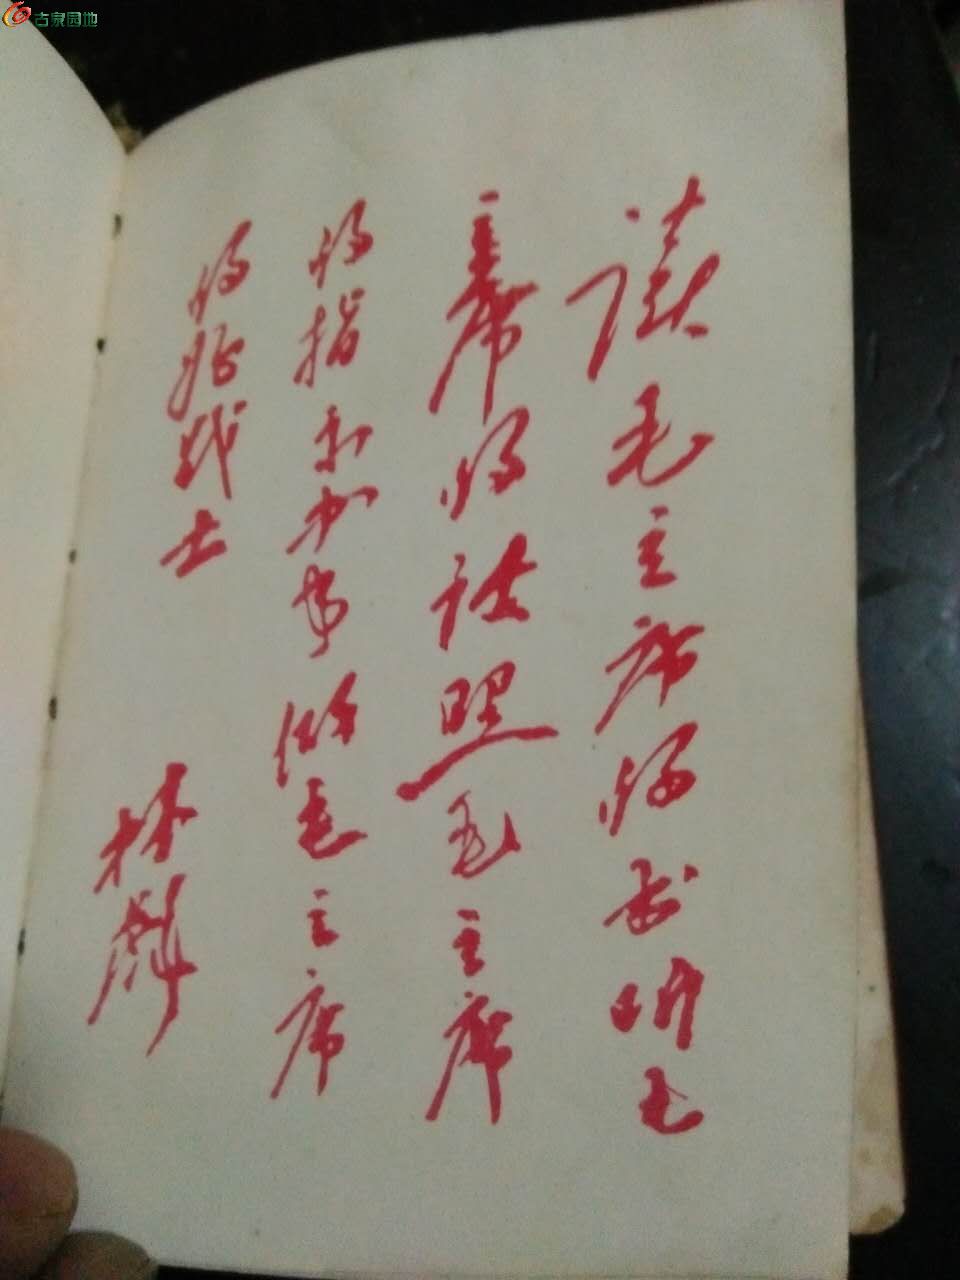 古泉园地
读毛主席的书听毛
主席的话照毛主席
的指示办事做毛主席
的好战士
林彪